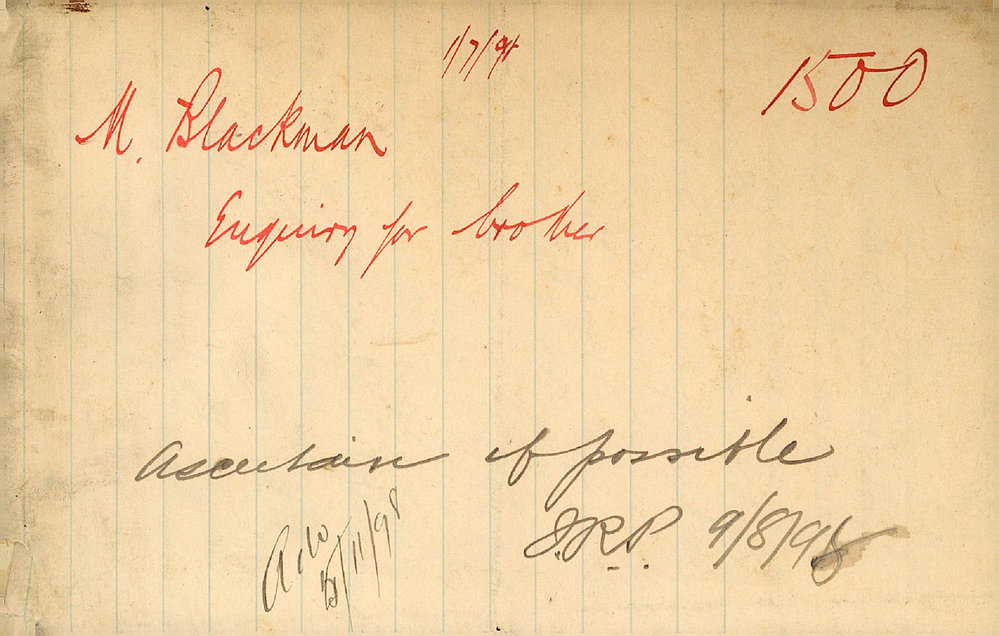 1/7/98
1500
M. Blackman
Enquiry for brother
Ascertain if possible
J.R.P. 9/8/98
5/11/98